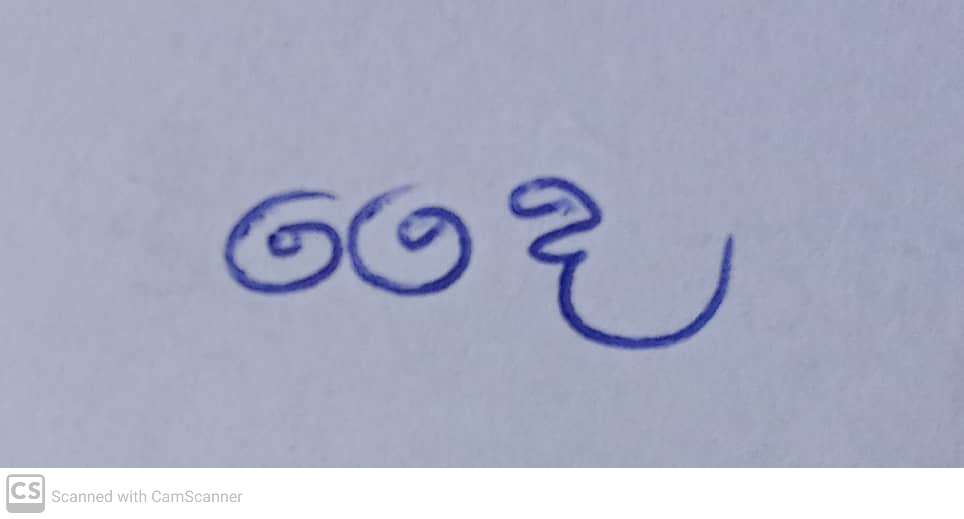 දෛ
CS Scanned with CamScanner